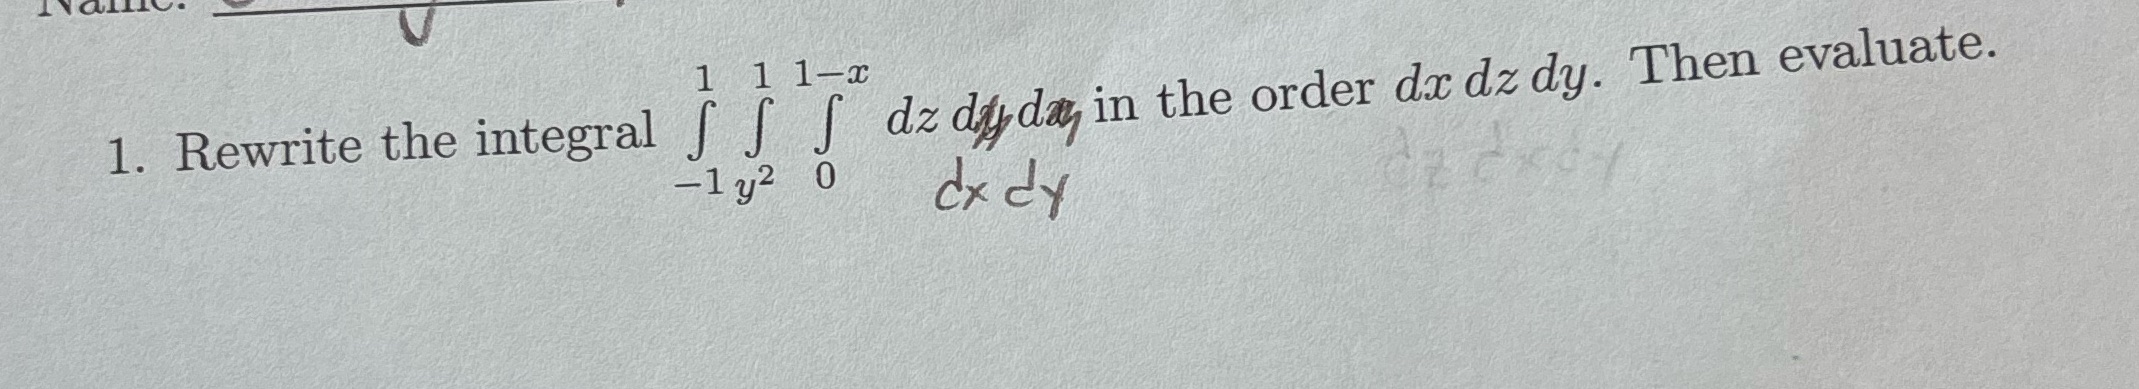 Name:
1. Rewrite the integral ∫_{-1}^{1} ∫_{y²}^{1} ∫_{0}^{1−x} dz dy dx, in the order dx dz dy. Then evaluate.
dx dy